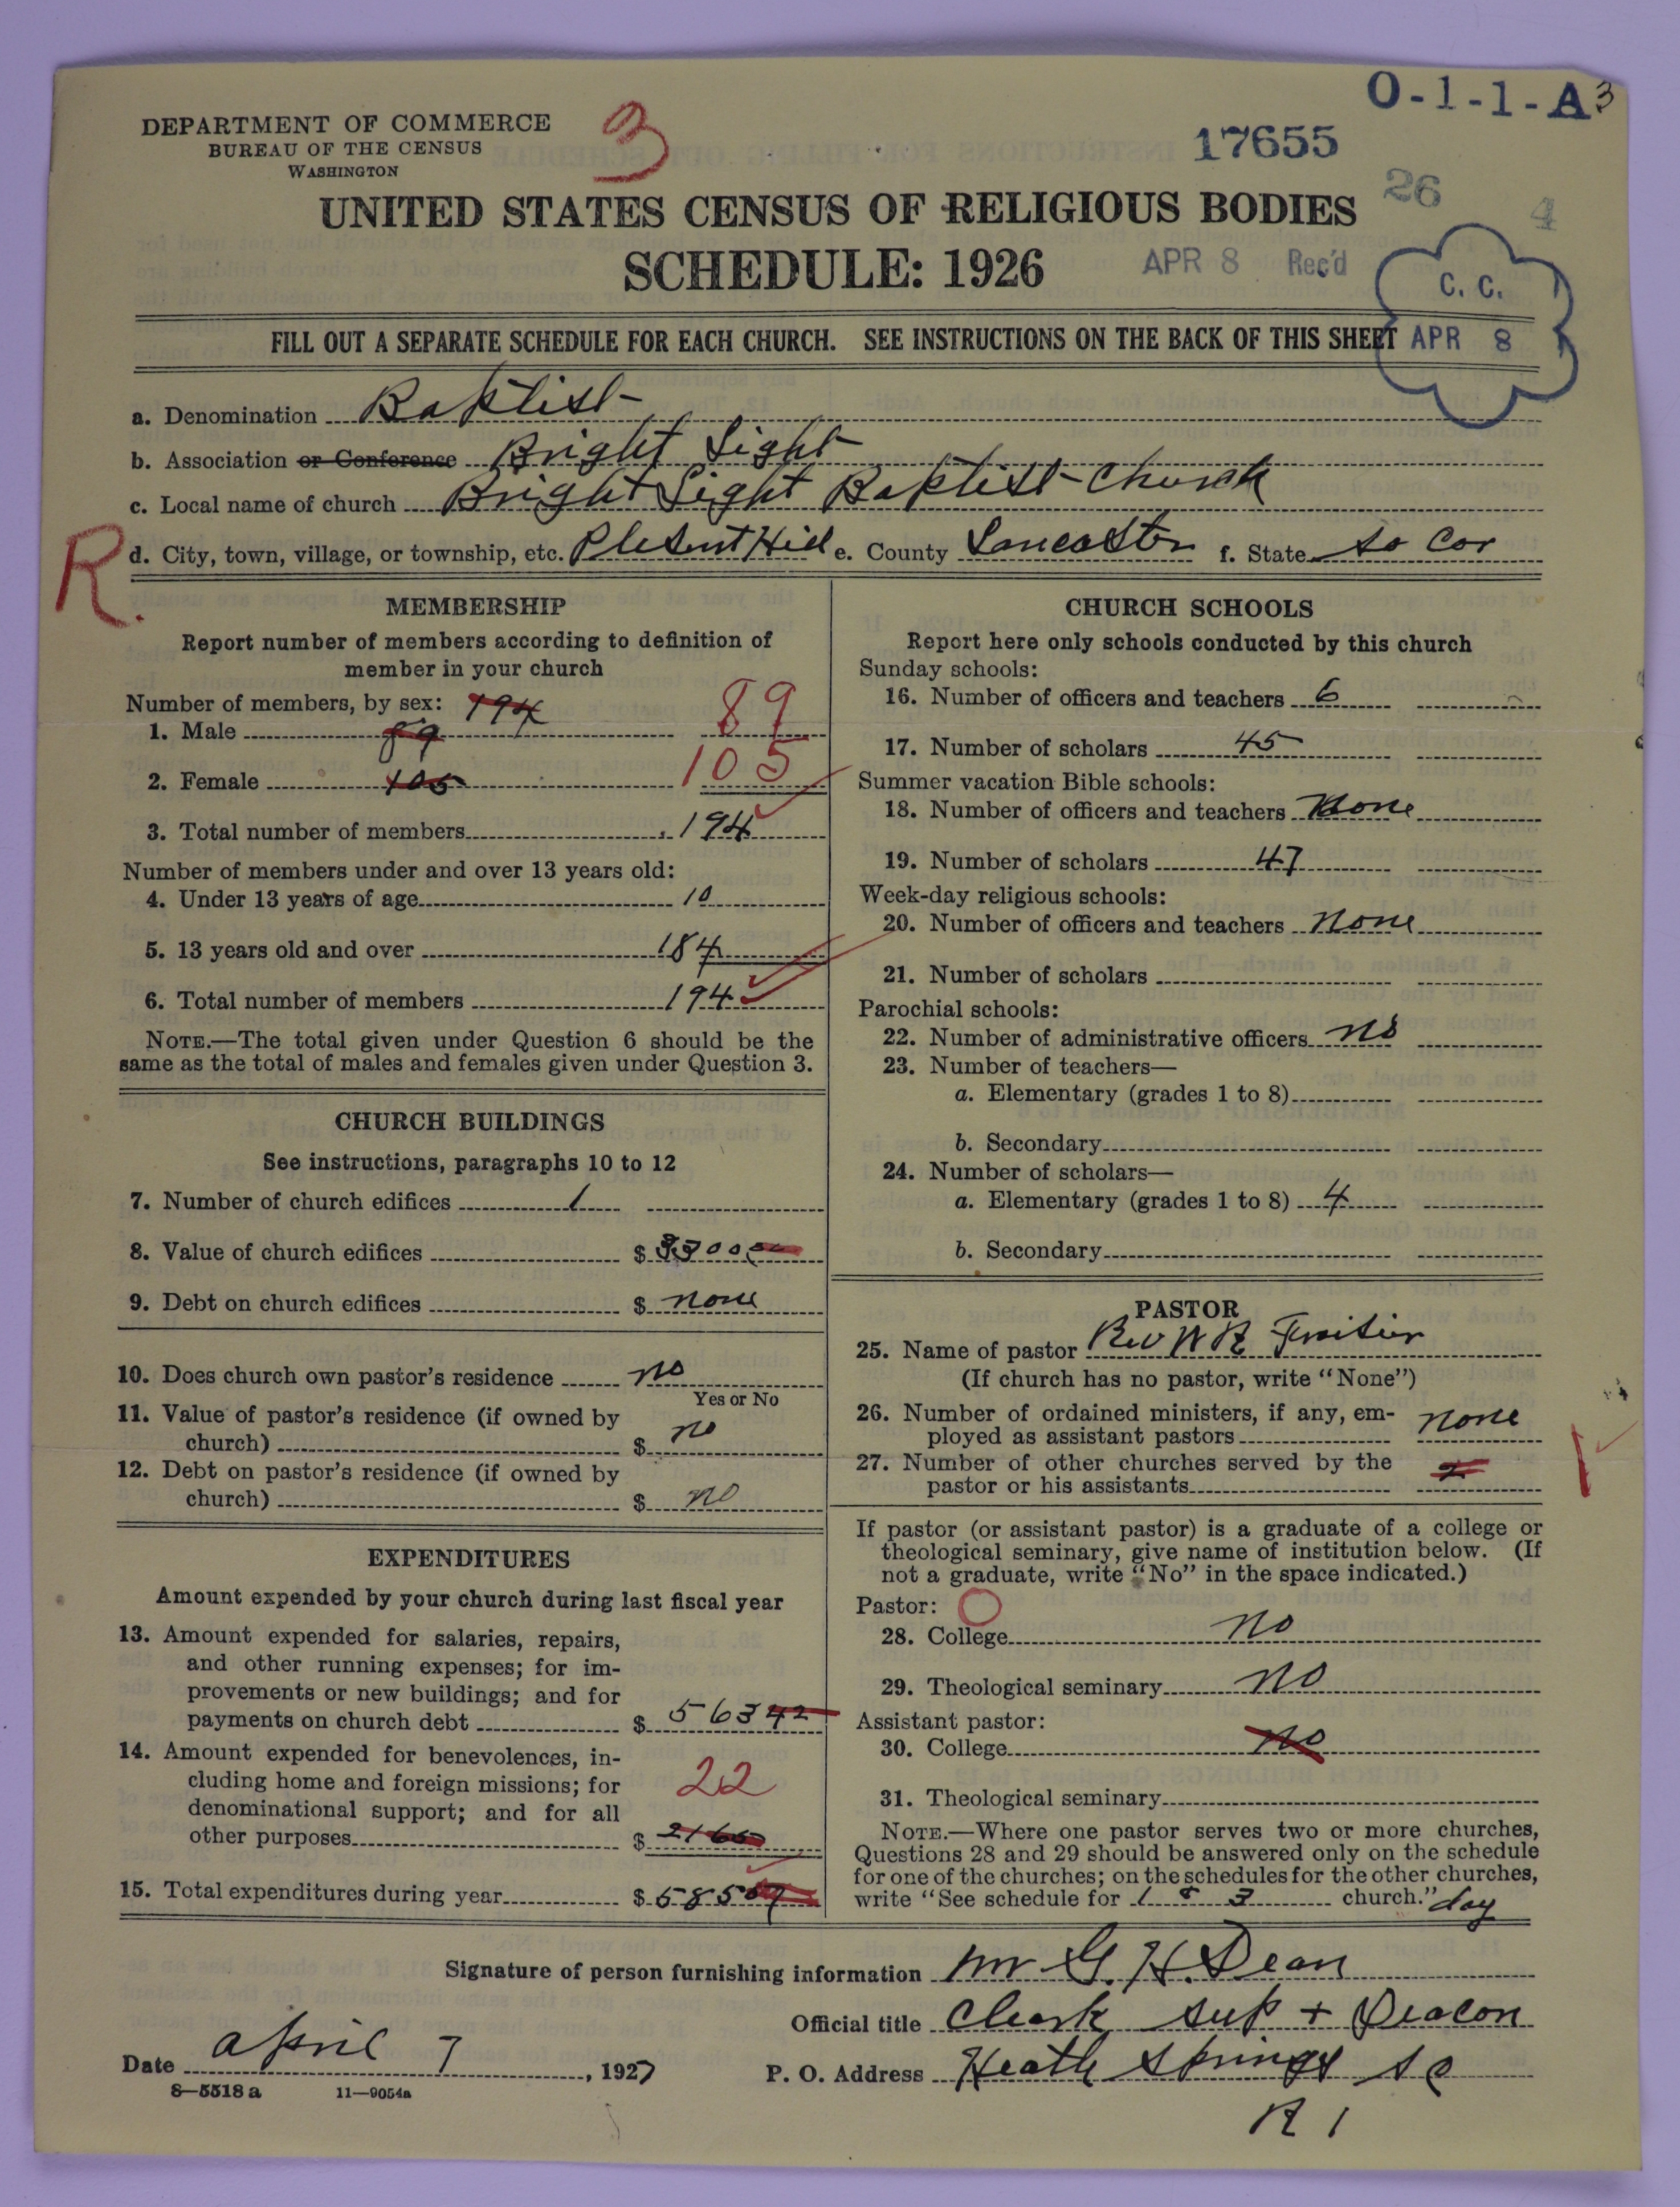 O-1-1-A 3
DEPARTMENT OF COMMERCE
BUREAU OF THE CENSUS
WASHINGTON
3
17655
26
4
UNITED STATES CENSUS OF RELIGIOUS BODIES
SCHEDULE: 1926
APR 8 Rec'd
C. C.
APR 8
FILL OUT A SEPARATE SCHEDULE FOR EACH CHURCH. SEE INSTRUCTIONS ON THE BACK OF THIS SHEET
a. Denomination Baptist
b. Association or Conference Bright Light
c. Local name of church Bright Light Baptist Church
R.
d. City, town, village, or township, etc. Plesent Hill e. County Lancaster f. State So Car
MEMBERSHIP
Report number of members according to definition of
member in your church
Number of members, by sex: 194
1. Male 89 89
2. Female 105 105
3. Total number of members 194
Number of members under and over 13 years old:
4. Under 13 years of age 10
5. 13 years old and over 184
6. Total number of members 194
NOTE.—The total given under Question 6 should be the
same as the total of males and females given under Question 3.
CHURCH BUILDINGS
See instructions, paragraphs 10 to 12
7. Number of church edifices 1
8. Value of church edifices $ 3300
9. Debt on church edifices $ none
10. Does church own pastor's residence no
Yes or No
11. Value of pastor's residence (if owned by
church) $ no
12. Debt on pastor's residence (if owned by
church) $ no
EXPENDITURES
Amount expended by your church during last fiscal year
13. Amount expended for salaries, repairs,
and other running expenses; for im-
provements or new buildings; and for
payments on church debt $ 563 42
14. Amount expended for benevolences, in-
cluding home and foreign missions; for
denominational support; and for all
other purposes $ 22
15. Total expenditures during year $ 585 07
CHURCH SCHOOLS
Report here only schools conducted by this church
Sunday schools:
16. Number of officers and teachers 6
17. Number of scholars 45
Summer vacation Bible schools:
18. Number of officers and teachers None
19. Number of scholars 47
Week-day religious schools:
20. Number of officers and teachers none
21. Number of scholars
Parochial schools:
22. Number of administrative officers no
23. Number of teachers—
a. Elementary (grades 1 to 8)
b. Secondary
24. Number of scholars—
a. Elementary (grades 1 to 8) 4
b. Secondary
PASTOR
25. Name of pastor Rev W R
(If church has no pastor, write "None")
26. Number of ordained ministers, if any, em-
ployed as assistant pastors none
27. Number of other churches served by the
pastor or his assistants
If pastor (or assistant pastor) is a graduate of a college or
theological seminary, give name of institution below. (If
not a graduate, write "No" in the space indicated.)
Pastor:
28. College no
29. Theological seminary no
Assistant pastor:
30. College no
31. Theological seminary
NOTE.—Where one pastor serves two or more churches,
Questions 28 and 29 should be answered only on the schedule
for one of the churches; on the schedules for the other churches,
write "See schedule for 1 & 3 church." day
Signature of person furnishing information Mr G. H. Dean
Official title Clerk sup + Deacon
Date april 7, 1927 P. O. Address Heath Springs S C
R 1
8—5518 a 11—9054a